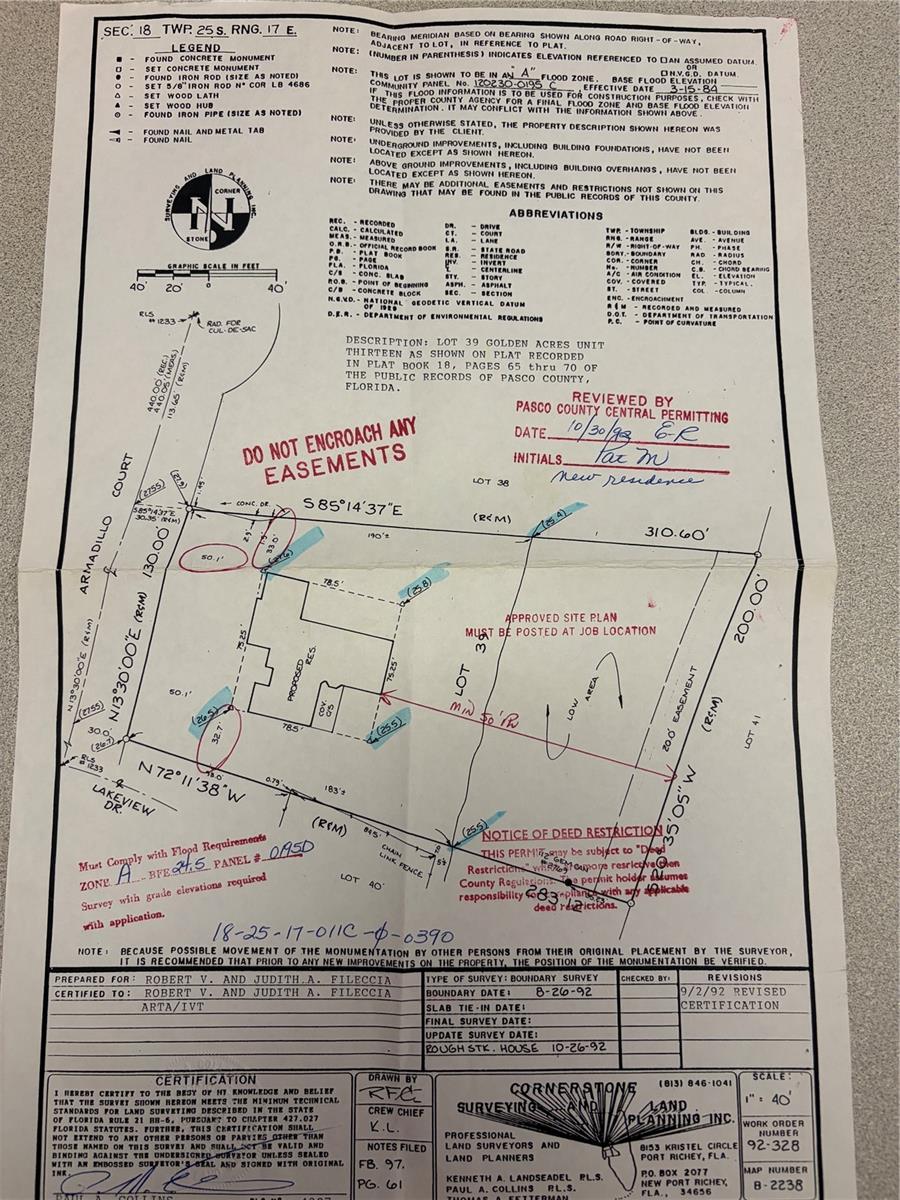 SEC. 18 TWP. 25 S. RNG. 17 E.
LEGEND
FOUND CONCRETE MONUMENT
SET CONCRETE MONUMENT
FOUND IRON ROD (SIZE AS NOTED)
SET 5/8" IRON ROD Nº COR LB 4686
SET WOOD LATH
SET WOOD HUB
FOUND IRON PIPE (SIZE AS NOTED)
FOUND NAIL AND METAL TAB
FOUND NAIL
NOTE: BEARING MERIDIAN BASED ON BEARING SHOWN ALONG ROAD RIGHT-OF-WAY,
ADJACENT TO LOT, IN REFERENCE TO PLAT.
NOTE: (NUMBER IN PARENTHESIS) INDICATES ELEVATION REFERENCED TO □ AN ASSUMED DATUM.
OR
□ N.V.G.D. DATUM.
NOTE: THIS LOT IS SHOWN TO BE IN AN "A" FLOOD ZONE. BASE FLOOD ELEVATION
COMMUNITY PANEL No. 120230-0195 C EFFECTIVE DATE 3-15-84
IF THIS FLOOD INFORMATION IS TO BE USED FOR CONSTRUCTION PURPOSES, CHECK WITH
THE PROPER COUNTY AGENCY FOR A FINAL FLOOD ZONE AND BASE FLOOD ELEVATION
DETERMINATION. IT MAY CONFLICT WITH THE INFORMATION SHOWN ABOVE.
NOTE: UNLESS OTHERWISE STATED, THE PROPERTY DESCRIPTION SHOWN HEREON WAS
PROVIDED BY THE CLIENT.
NOTE: UNDERGROUND IMPROVEMENTS, INCLUDING BUILDING FOUNDATIONS, HAVE NOT BEEN
LOCATED EXCEPT AS SHOWN HEREON.
NOTE: ABOVE GROUND IMPROVEMENTS, INCLUDING BUILDING OVERHANGS, HAVE NOT BEEN
LOCATED EXCEPT AS SHOWN HEREON.
NOTE: THERE MAY BE ADDITIONAL EASEMENTS AND RESTRICTIONS NOT SHOWN ON THIS
DRAWING THAT MAY BE FOUND IN THE PUBLIC RECORDS OF THIS COUNTY.
SURVEYING AND LAND PLANNING INC.
CORNER
STONE
GRAPHIC SCALE IN FEET
40' 20' 0 40'
ABBREVIATIONS
REC. - RECORDED
CALC. - CALCULATED
MEAS. - MEASURED
O.R.B. - OFFICIAL RECORD BOOK
P.B. - PLAT BOOK
PG. - PAGE
FLA. - FLORIDA
C/S - CONC. SLAB
P.O.B. - POINT OF BEGINNING
C/B - CONCRETE BLOCK
N.G.V.D. - NATIONAL GEODETIC VERTICAL DATUM
OF 1929
D.E.R. - DEPARTMENT OF ENVIRONMENTAL REGULATIONS
DR. - DRIVE
CT. - COURT
LA. - LANE
S.R. - STATE ROAD
RES. - RESIDENCE
INV. - INVERT
- CENTERLINE
STY. - STORY
ASPH. - ASPHALT
SEC. - SECTION
TWP. - TOWNSHIP
RNG. - RANGE
R/W - RIGHT-OF-WAY
BDRY. - BOUNDARY
COR. - CORNER
No. - NUMBER
A/C - AIR CONDITION
COV. - COVERED
ST. - STREET
ENC. - ENCROACHMENT
R & M - RECORDED AND MEASURED
D.O.T. - DEPARTMENT OF TRANSPORTATION
P.C. - POINT OF CURVATURE
BLDG. - BUILDING
AVE. - AVENUE
PH. - PHASE
RAD. - RADIUS
CH. - CHORD
C.B. - CHORD BEARING
EL. - ELEVATION
TYP. - TYPICAL
COL. - COLUMN
RLS
#1233
RAD. FOR
CUL-DE-SAC
DESCRIPTION: LOT 39 GOLDEN ACRES UNIT
THIRTEEN AS SHOWN ON PLAT RECORDED
IN PLAT BOOK 18, PAGES 65 thru 70 OF
THE PUBLIC RECORDS OF PASCO COUNTY,
FLORIDA.
440.00' (REC.)
440.05' (MEAS.)
113.65' (R&M)
REVIEWED BY
PASCO COUNTY CENTRAL PERMITTING
DATE 10/30/92 E-R
INITIALS Pat M
new residence
DO NOT ENCROACH ANY
EASEMENTS
LOT 38
ARMADILLO COURT
(27.55)
(27.9)
S85°14'37"E
30.35' (R&M)
CONC. DR.
S 85°14'37"E
(R&M)
310.60'
(25.4)
190'±
50.1'
2.9'
33.0'
78.5'
(25.8)
N13°30'00"E (R&M)
130.00'
200.00'
APPROVED SITE PLAN
MUST BE POSTED AT JOB LOCATION
75.25'
PROPOSED
RES.
75.25'
LOT 39
LOW AREA
20.0' EASEMENT
(R&M)
LOT 41
N13°30'00"E (R&M)
50.1'
COV.
MIN 50'
(27.55)
(26.5)
78.5'
(25.5)
30.0'
(26.7)
32.7'
RLS
#1233
LAKEVIEW
DR.
N 72°11'38" W
0.73'
183'±
(R&M)
84.5'
CHAIN
LINK FENCE
(25.5)
S 20°35'05" W
283.12'
LOT 40
NOTICE OF DEED RESTRICTION
THIS PERMIT may be subject to "Deed
Restrictions" more resrictive then
County Regulations. The permit holder assumes
responsibility for compliance with any applicable
deed restrictions.
Must Comply with Flood Requirements
ZONE A BFE 24.5 PANEL # 0195D
Survey with grade elevations required
with application.
18-25-17-011C-0-0390
NOTE: BECAUSE POSSIBLE MOVEMENT OF THE MONUMENTATION BY OTHER PERSONS FROM THEIR ORIGINAL PLACEMENT BY THE SURVEYOR,
IT IS RECOMMENDED THAT PRIOR TO ANY NEW IMPROVEMENTS ON THE PROPERTY, THE POSITION OF THE MONUMENTATION BE VERIFIED.
PREPARED FOR: ROBERT V. AND JUDITH A. FILECCIA
CERTIFIED TO: ROBERT V. AND JUDITH A. FILECCIA
ARTA/IVT
TYPE OF SURVEY: BOUNDARY SURVEY
BOUNDARY DATE: 8-26-92
SLAB TIE-IN DATE:
FINAL SURVEY DATE:
UPDATE SURVEY DATE:
ROUGH STK. HOUSE 10-26-92
CHECKED BY:
REVISIONS
9/2/92 REVISED
CERTIFICATION
CERTIFICATION
I HEREBY CERTIFY TO THE BEST OF MY KNOWLEDGE AND BELIEF
THAT THE SURVEY SHOWN HEREON MEETS THE MINIMUM TECHNICAL
STANDARDS FOR LAND SURVEYING DESCRIBED IN THE STATE
OF FLORIDA RULE 21 HH-6, PURSUANT TO CHAPTER 427.027
FLORIDA STATUTES. FURTHER, THIS CERTIFICATION SHALL
NOT EXTEND TO ANY OTHER PERSONS OR PARTIES OTHER THAN
THOSE NAMED ON THE SURVEY AND SHALL NOT BE VALID AND
BINDING AGAINST THE UNDERSIGNED SURVEYOR UNLESS SEALED
WITH AN EMBOSSED SURVEYOR'S SEAL AND SIGNED WITH ORIGINAL
INK.
PAUL A. COLLINS
DRAWN BY
CREW CHIEF
K.L.
NOTES FILED
FB. 97.
PG. 61
CORNERSTONE
(813) 846-1041
SURVEYING AND LAND
PLANNING INC.
PROFESSIONAL
LAND SURVEYORS AND
LAND PLANNERS
KENNETH A. LANDSEADEL R.L.S.
PAUL A. COLLINS R.L.S.
THOMAS A. FETTERMAN
8153 KRISTEL CIRCLE
PORT RICHEY, FLA.
P.O. BOX 2077
NEW PORT RICHEY,
FLA., 34656
SCALE:
1" = 40'
WORK ORDER
NUMBER
92-328
MAP NUMBER
B-2238